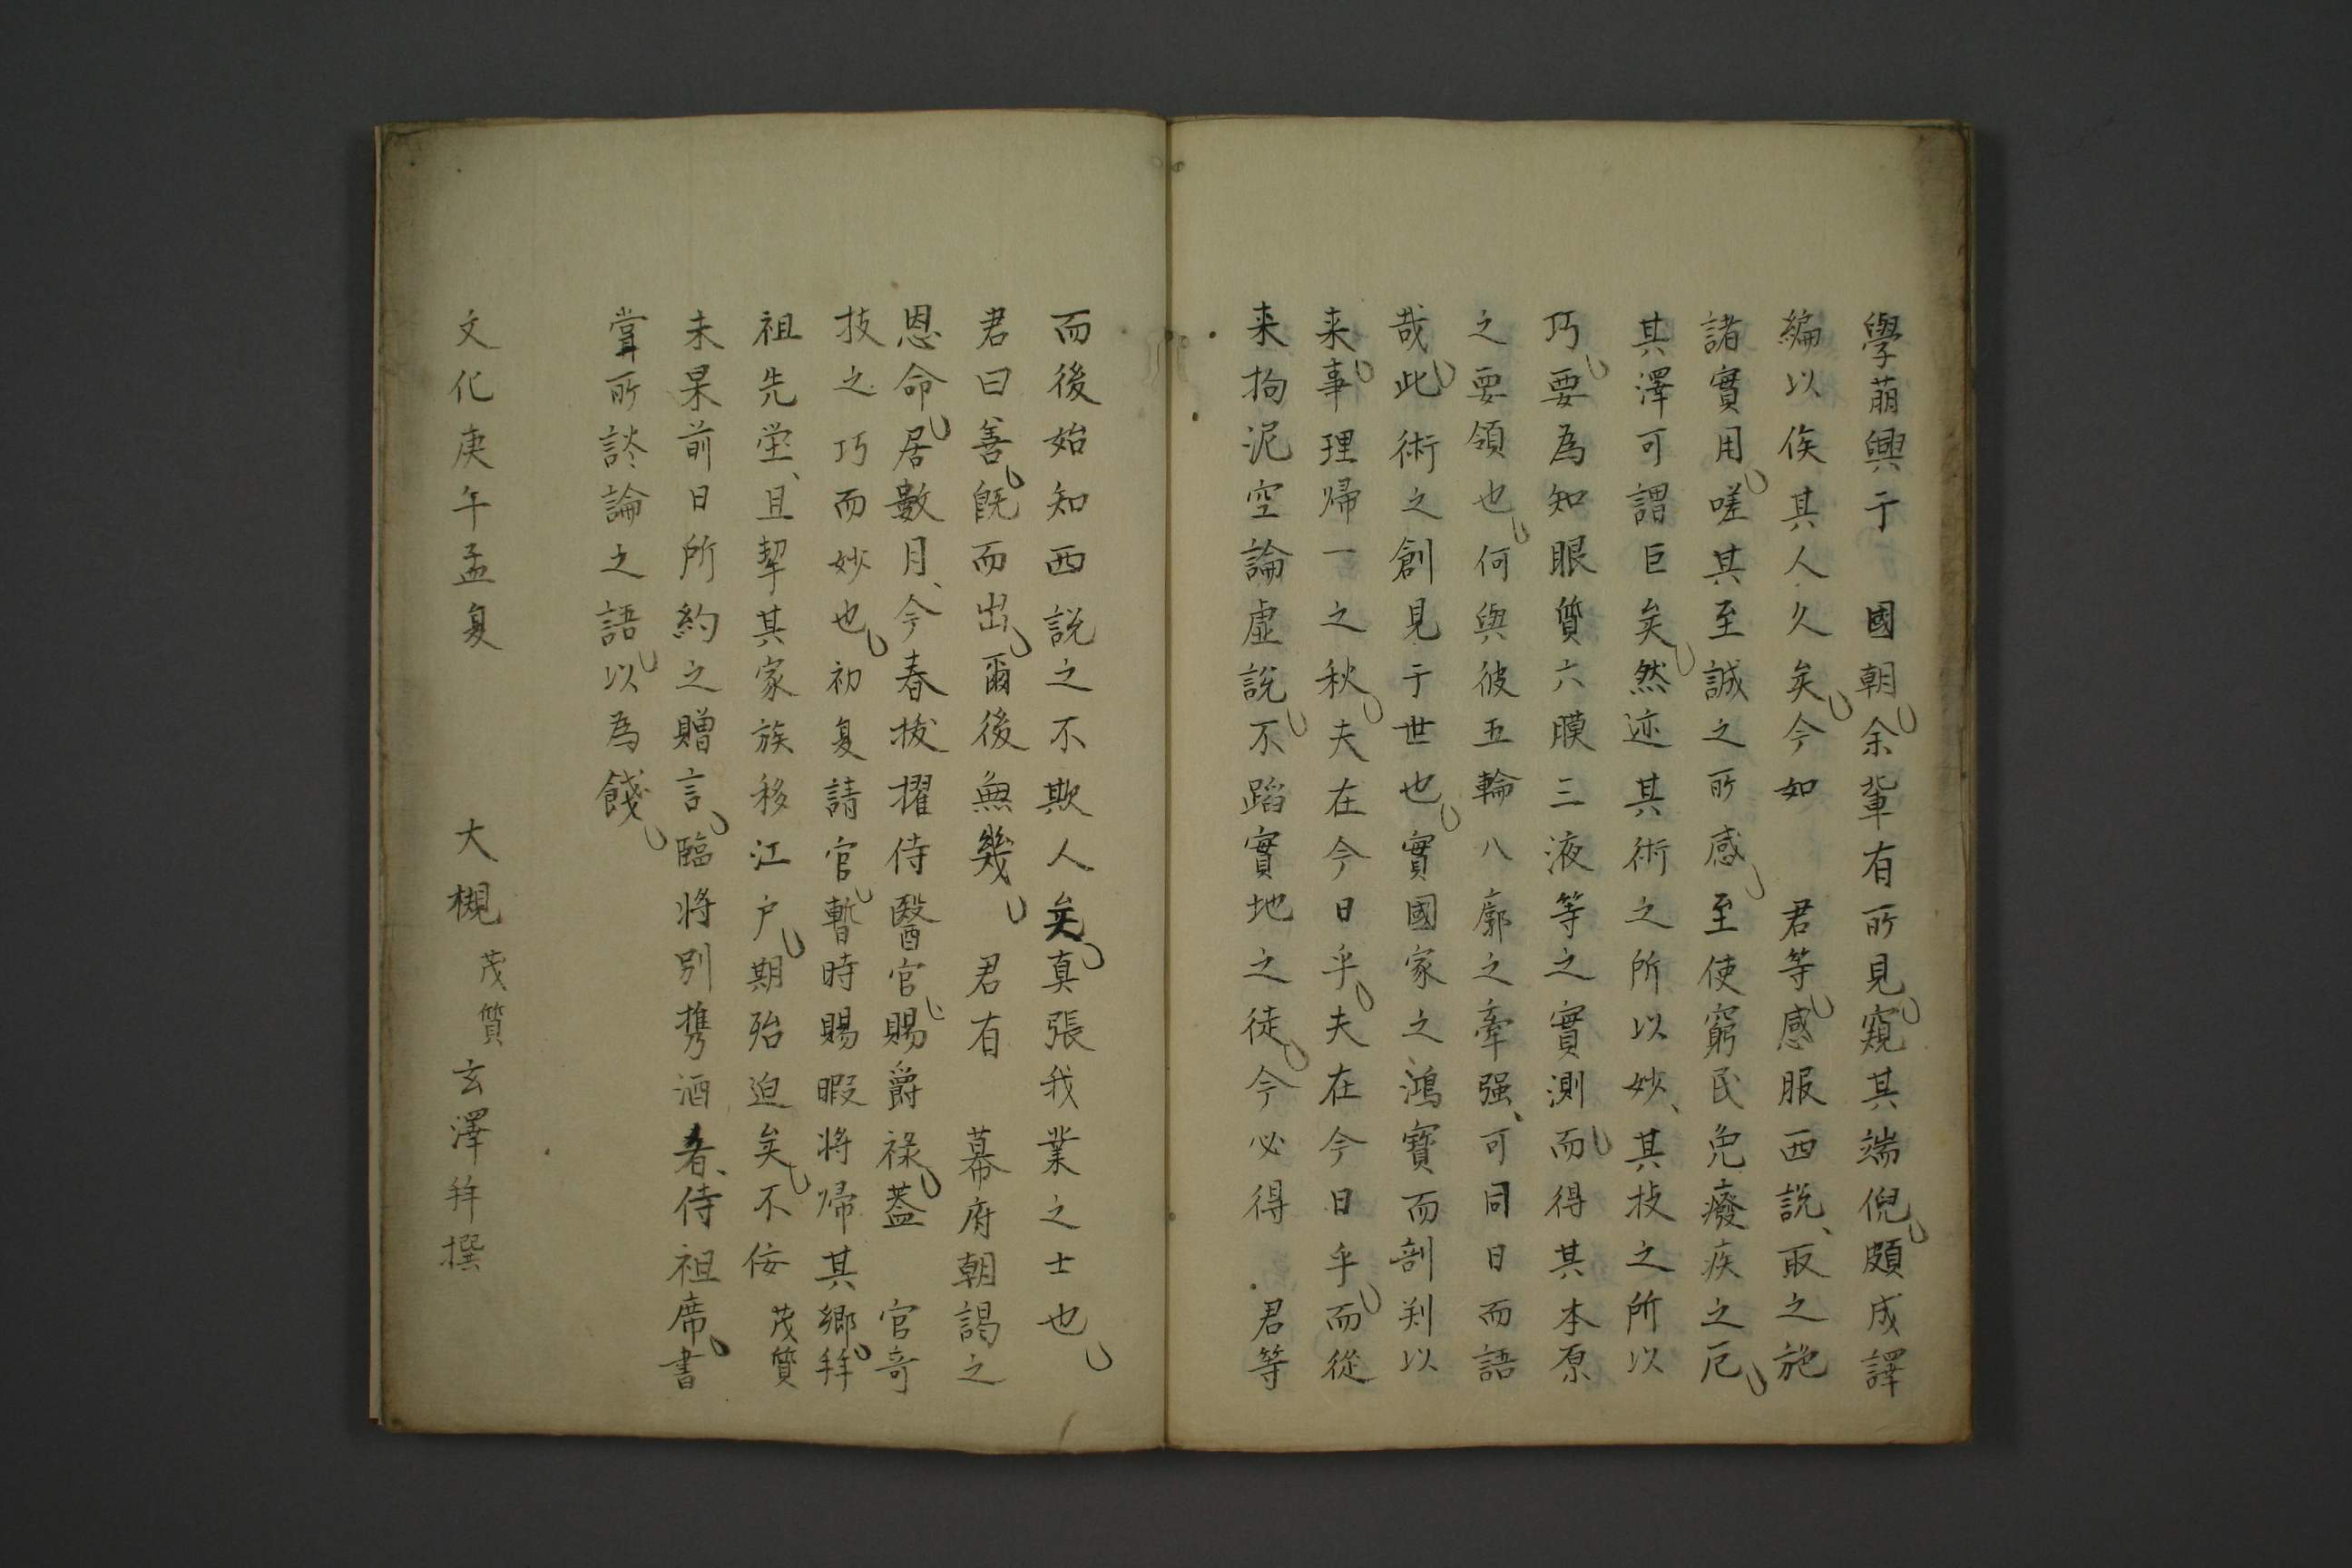 學萠興于　國朝余輩有所見窺其端倪頗成譯
編以俟其人久矣今如　君等感服西説、取之施
諸實用嗟其至誠之所感至使窮民免癈疾之厄
其澤可謂巨矣然迹其術之所以妙、其技之所以
巧要為知眼質六膜三液等之實測而得其本原
之要領也何與彼五輪八廓之牽强、可同日而語
哉此術之創見于世也實國家之鴻寳而剖判以
来事理帰一之秋夫在今日乎夫在今日乎而從
来拘泥空論虚説不蹈實地之徒今必得　君等
而後始知西説之不欺人矣真張我業之士也
君曰善既而出爾後無幾　君有　幕府朝謁之
恩命居數月、今春拔擢侍醫官賜爵禄葢　官奇
技之巧而妙也初夏請官暫時賜暇将帰其鄉拜
祖先塋、且挈其家族移江户期殆迫矣不佞茂質
未果前日所約之贈言臨将別携酒肴、侍祖席書
甞所談論之語以為餞
文化庚午孟夏　　大槻茂質玄澤拜撰